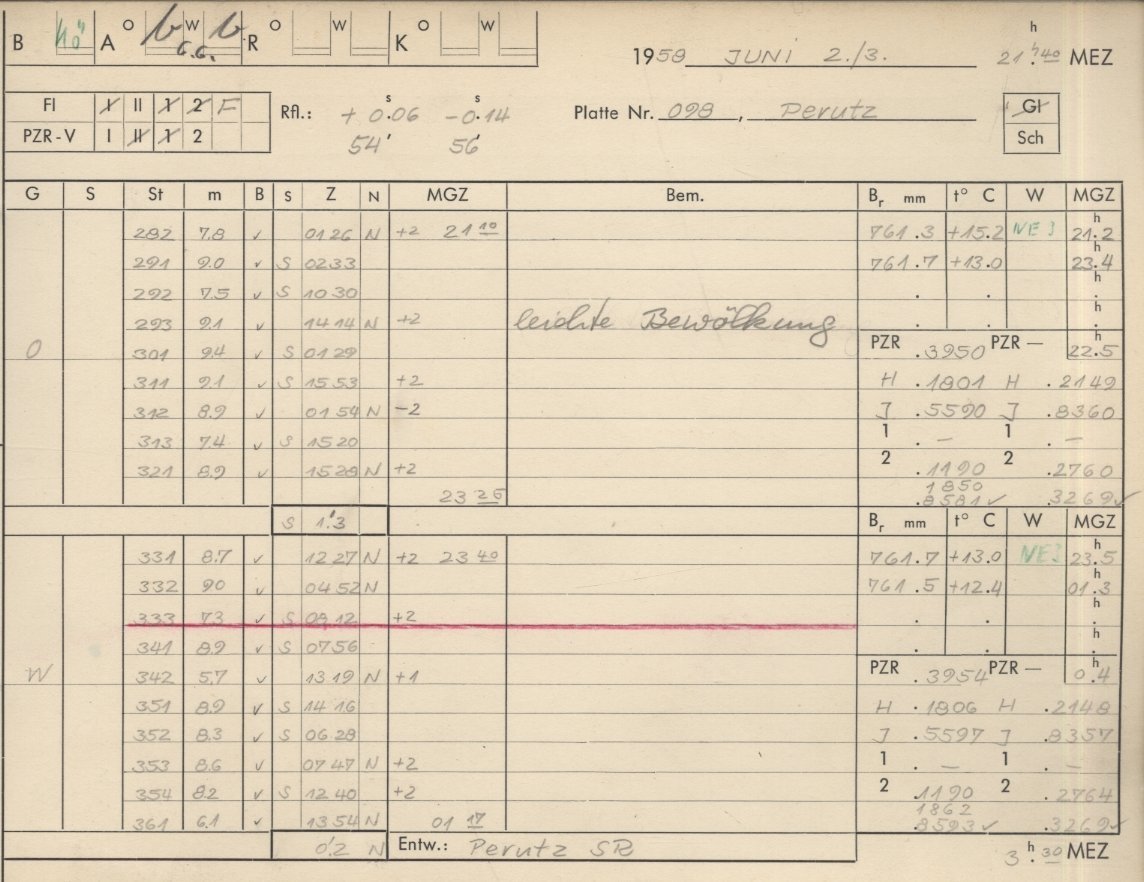 B Hö A O b W b R O W K O W
6.6.
1958 JUNI 2./3. 21 h 40 MEZ
FI I II 1 2 F Rfl.: + 0.06 s - 0.14 s Platte Nr. 098, Perutz GI
PZR-V I II 1 2 54' 56' Sch
G S St m B S Z N MGZ Bem. Br mm t° C W MGZ
282 7.8 v 01 26 N +2 21 10 761.3 +15.2 NE 3 21.2 h
291 9.0 v S 02 33 761.7 +13.0 23.4 h
292 7.5 v S 10 30 . . . h
293 9.1 v 14 14 N +2 leichte Bewölkung . . . h
O 301 9.4 v S 01 29 PZR .3950 PZR — 22.5 h
311 9.1 v S 15 53 +2 H .1801 H .2149
312 8.9 v 01 54 N -2 J .5590 J .8360
313 7.4 v S 15 20 1 . — 1 . —
321 8.9 v 15 28 N +2 2 .1190 2 .2760
23 26 1850
.8581 ✓ .3269 ✓
S 1.'3 Br mm t° C W MGZ
331 8.7 v 12 27 N +2 23 40 761.7 +13.0 NE 3 23.5 h
332 90 v 04 52 N 761.5 +12.4 01.3 h
333 7.3 v S 09 12 +2 . . . h
341 8.9 v S 07 56 . . . h
W 342 5.7 v 13 19 N +1 PZR .3954 PZR — 0.4 h
351 8.9 v S 14 16 H .1806 H .2148
352 8.3 v S 06 28 J .5597 J .8357
353 8.6 v 07 47 N +2 1 . — 1 . —
354 8.2 v S 12 40 +2 2 .1190 2 .2764
1862
361 6.1 v 13 54 N 01 17 .8593 ✓ .3269 ✓
0.'2 N Entw.: Perutz SR 3 h 30 MEZ